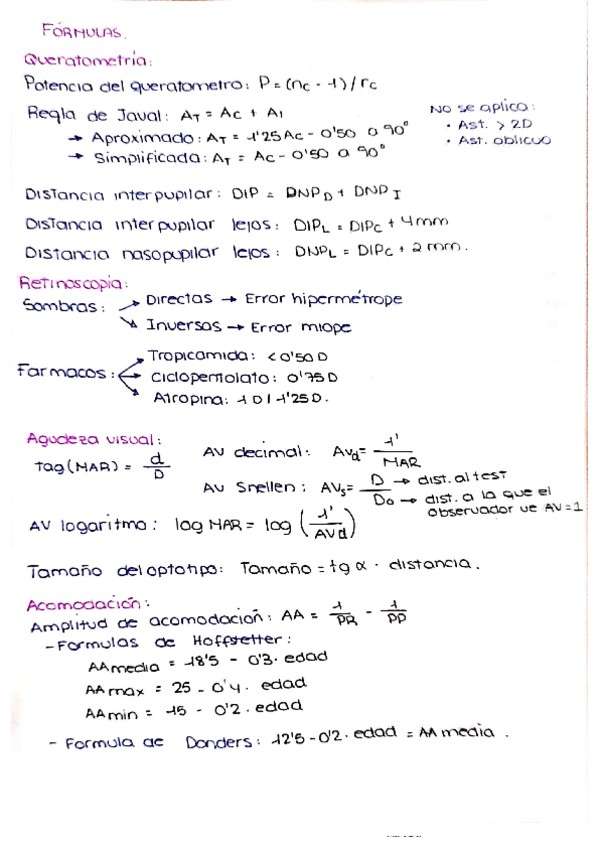 FÓRMULAS.
Queratometría:
Potencia del queratometro: P = (nc - 1) / rc
Regla de Javal: AT = AC + AI
→ Aproximado: AT = 1'25 AC - 0'50 a 90°
→ Simplificada: AT = AC - 0'50 a 90°
No se aplica:
• Ast. > 2D
• Ast. oblicuo
Distancia interpupilar: DIP = DNPD + DNPI
Distancia interpupilar lejos: DIPL = DIPC + 4mm
Distancia nasopupilar lejos: DNPL = DIPC + 2mm.
Retinoscopia:
Sombras: → Directas → Error hipermétrope
→ Inversas → Error miope
Farmacos: → Tropicamida: < 0'50 D
→ Ciclopentolato: 0'75 D
→ Atropina: 1D / 1'25D.
Agudeza visual:
tag (MAR) = d/D
AV decimal: AVd = 1'/MAR
AV Snellen: AVs = D/Do
D → dist. al test
Do → dist. a la que el
observador ve AV = 1
AV logaritmo: log MAR = log (1'/AVd)
Tamaño del optotipo: Tamaño = tg α · distancia.
Acomodación:
Amplitud de acomodación: AA = 1/PR - 1/PP
- Formulas de Hoffstetter:
AA media = 18'5 - 0'3 · edad
AA max = 25 - 0'4 · edad
AA min = 15 - 0'2 · edad
- Formula de Donders: 12'5 - 0'2 · edad = AA media.